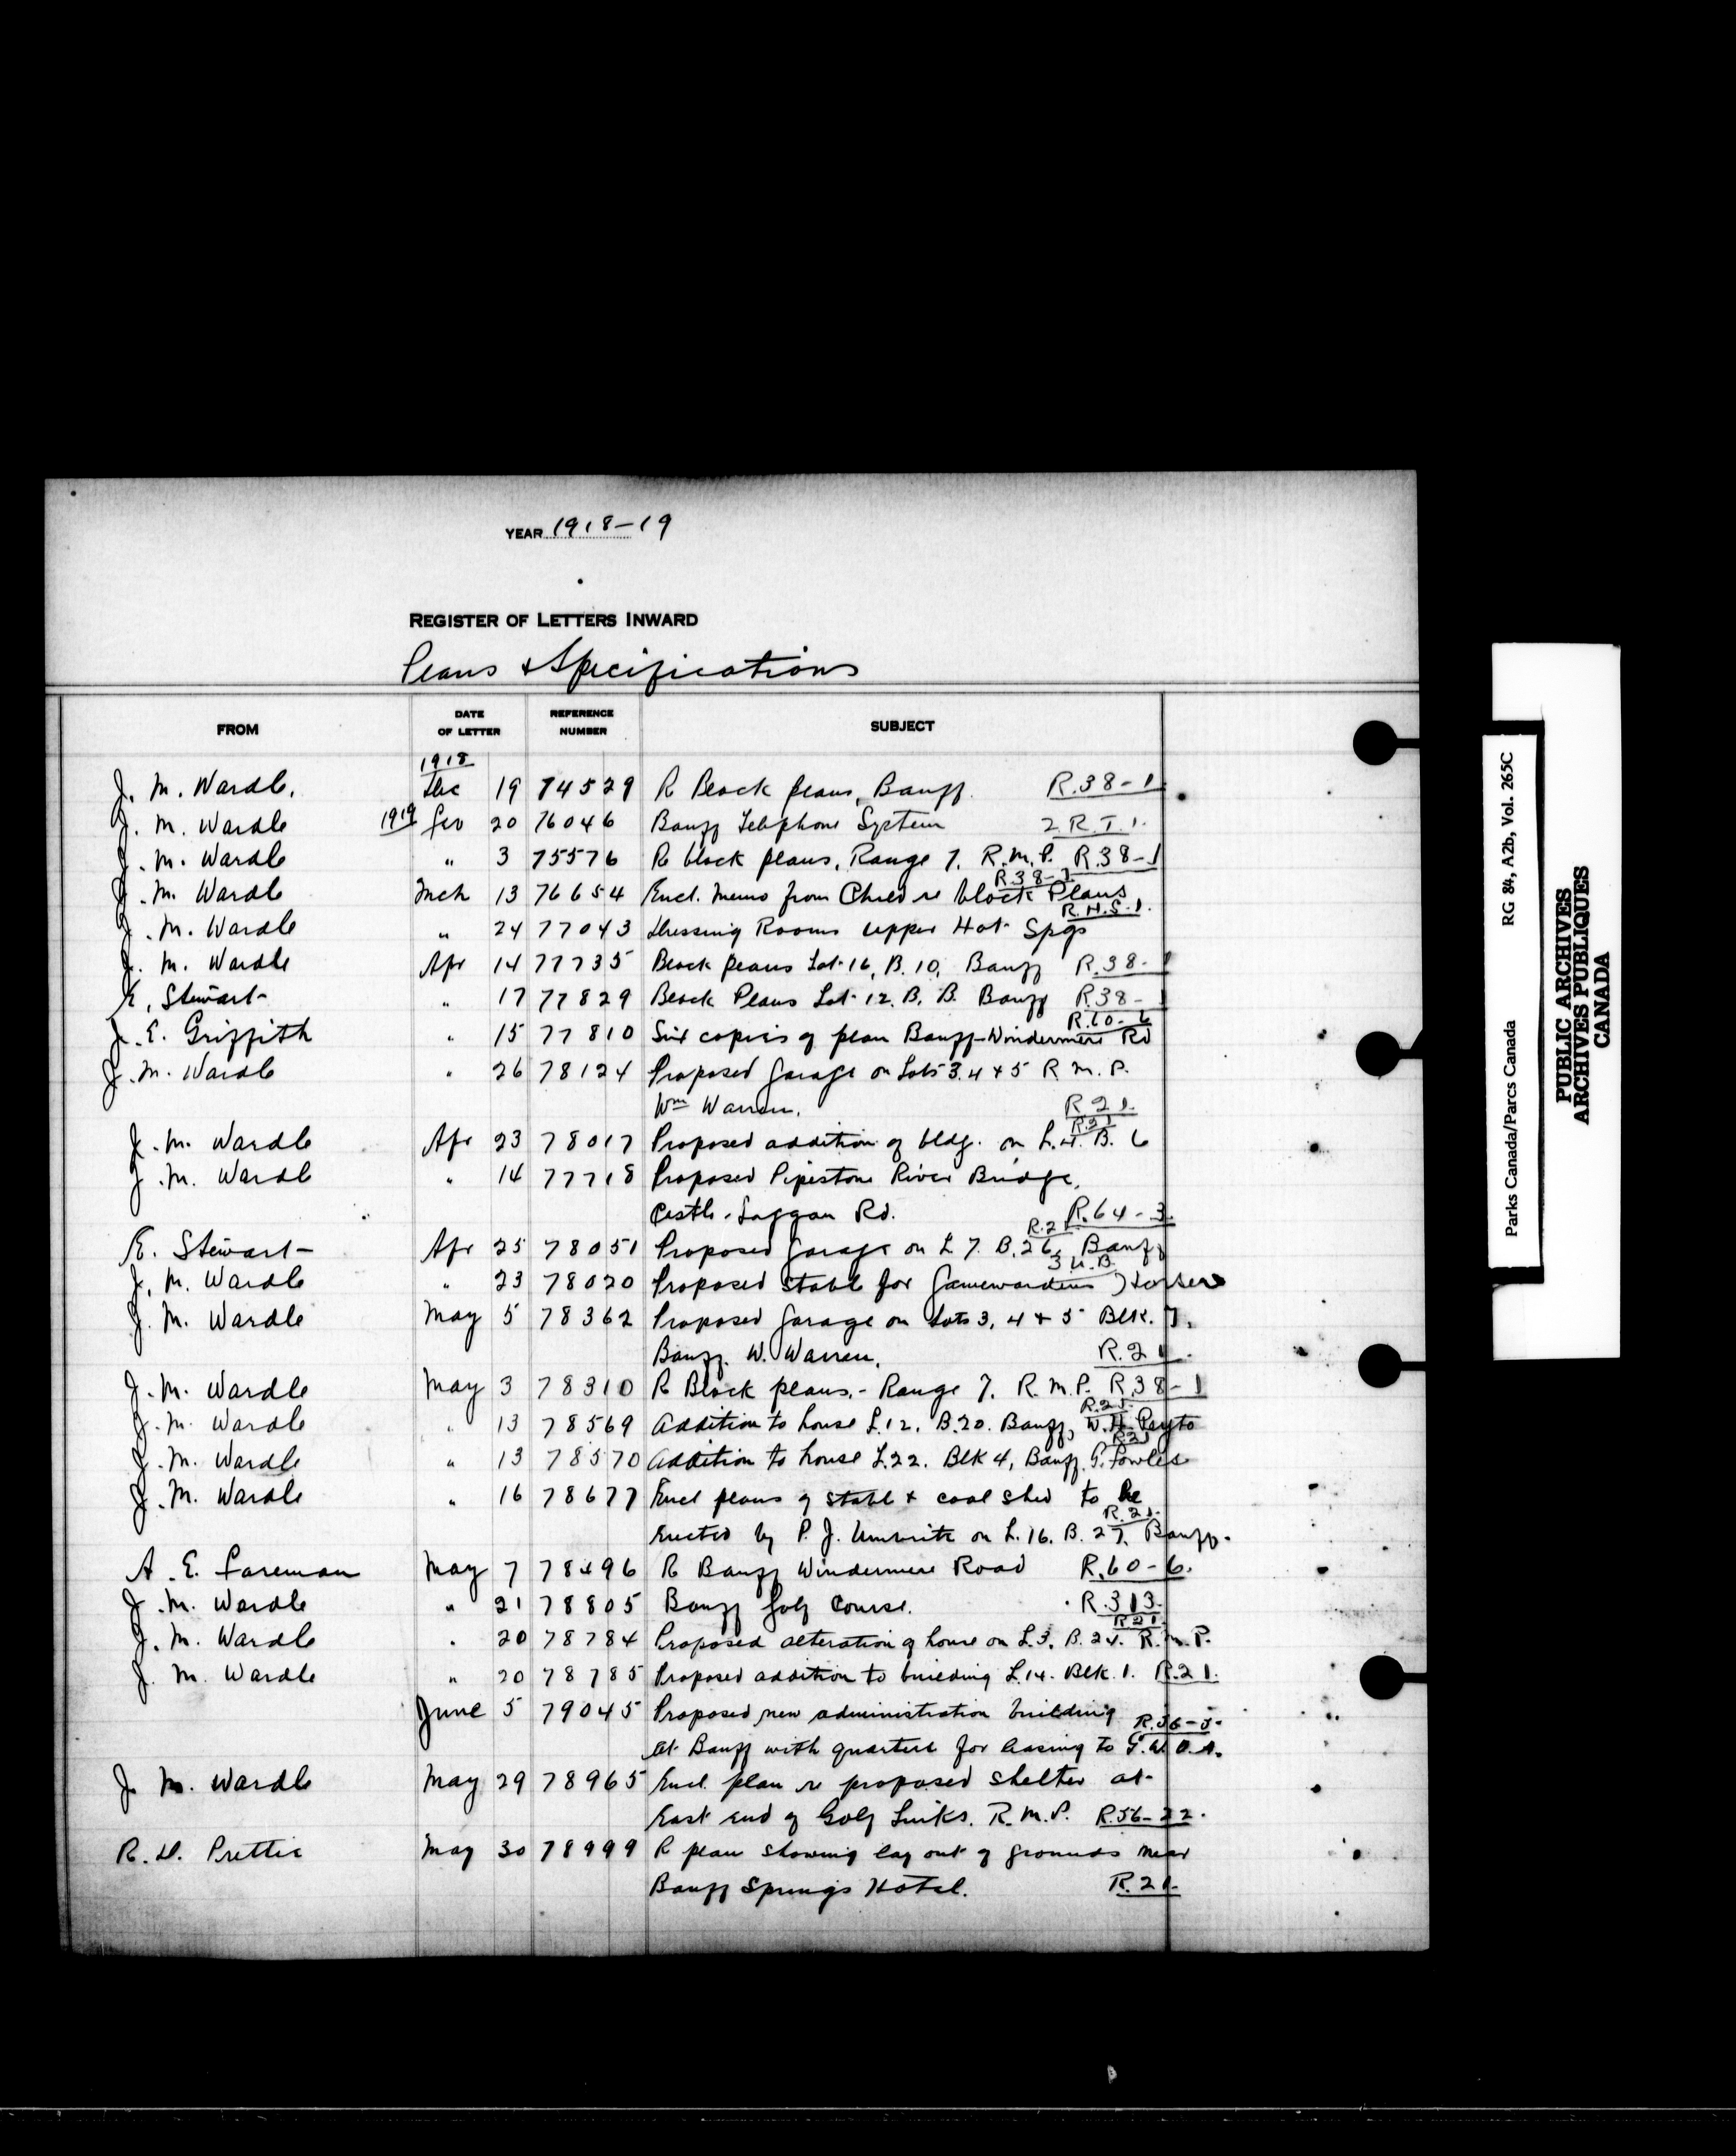 YEAR 1918-19
REGISTER OF LETTERS INWARD
Plans & Specifications
FROM DATE OF LETTER REFERENCE NUMBER SUBJECT
1918
J. M. Wardle. Dec 19 74529 Re Block plans, Banff. R.38-1
J. M. Wardle 1919 Feb 20 76046 Banff Telephone System 2.R.T.1.
J. M. Wardle " 3 75576 Re block plans, Range 7. R.M.P. R.38-1
R.38-1
J. M. Wardle Mch 13 76654 Encl. memo from Child re block Plans
R.H.S.1.
J. M. Wardle " 24 77043 Dressing Rooms Upper Hot Spgs
J. M. Wardle Apr 14 77735 Block plans Lot 16, B. 10, Banff R.38-1
E. Stewart " 17 77829 Block Plans Lot 12. B. B. Banff R.38-1
R.60-6
J. E. Griffith " 15 77810 Six copies of plan Banff-Windermere Rd
J. M. Wardle " 26 78124 Proposed Garage on Lots 3.4 & 5 R.M.P.
Wm Warren. R.21.
R.21
J. M. Wardle Apr 23 78017 Proposed addition of bldg. on L.4. B. 6
J. M. Wardle " 14 77718 Proposed Pipestone River Bridge,
Castle-Laggan Rd. R.64-3.
R.21
E. Stewart Apr 25 78051 Proposed Garage on L 7. B.26, Banff
3 U.B.
J. M. Wardle " 23 78020 Proposed Stable for Gamewardens Horses
J. M. Wardle May 5 78362 Proposed Garage on Lots 3, 4 & 5 Blk. 7.
Banff. W. Warren. R.21.
J. M. Wardle May 3 78310 Re Block plans.- Range 7. R.M.P. R.38-1
R.21.
J. M. Wardle " 13 78569 Addition to house L.12. B.20. Banff, W.H. Peyto
R.21
J. M. Wardle " 13 78570 Addition to house L.22. Blk 4, Banff. G. Fowles
J. M. Wardle " 16 78677 Encl plans of stable & coal shed to be
R.21.
Erected by P. J. Umbrite on L.16. B. 27. Banff.
A. E. Foreman May 7 78496 Re Banff Windermere Road R.60-6.
J. M. Wardle " 21 78805 Banff Golf Course. R.313.
R21.
J. M. Wardle " 20 78784 Proposed alteration of house on L.3. B.24. R.M.P.
J. M. Wardle " 20 78785 Proposed addition to building L.14. Blk. 1. R.21.
June 5 79045 Proposed new administration building
R.56-5.
At Banff with quarters for leasing to G.W.V.A.
J. M. Wardle May 29 78965 Encl. plan re proposed shelter at
East End of Golf Links. R.M.P. R.56-22.
R. D. Prettie May 30 78999 Re plan showing lay out of grounds near
Banff Springs Hotel. R.21.
Parks Canada/Parcs Canada RG 84, A2b, Vol. 265C
PUBLIC ARCHIVES
ARCHIVES PUBLIQUES
CANADA